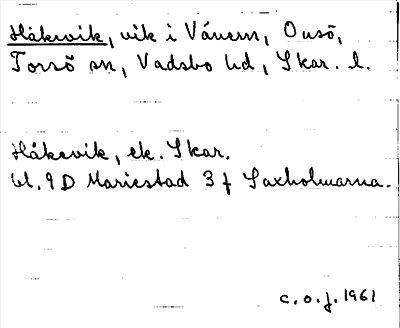 Håkevik, vik i Vänern, Onsö,
Torsö sn, Vadsbo hd, Skar. l.
Håkevik, ek. Skar.
bl. 9 D Mariestad 3 f Saxholmarna.
c. o. f. 1961